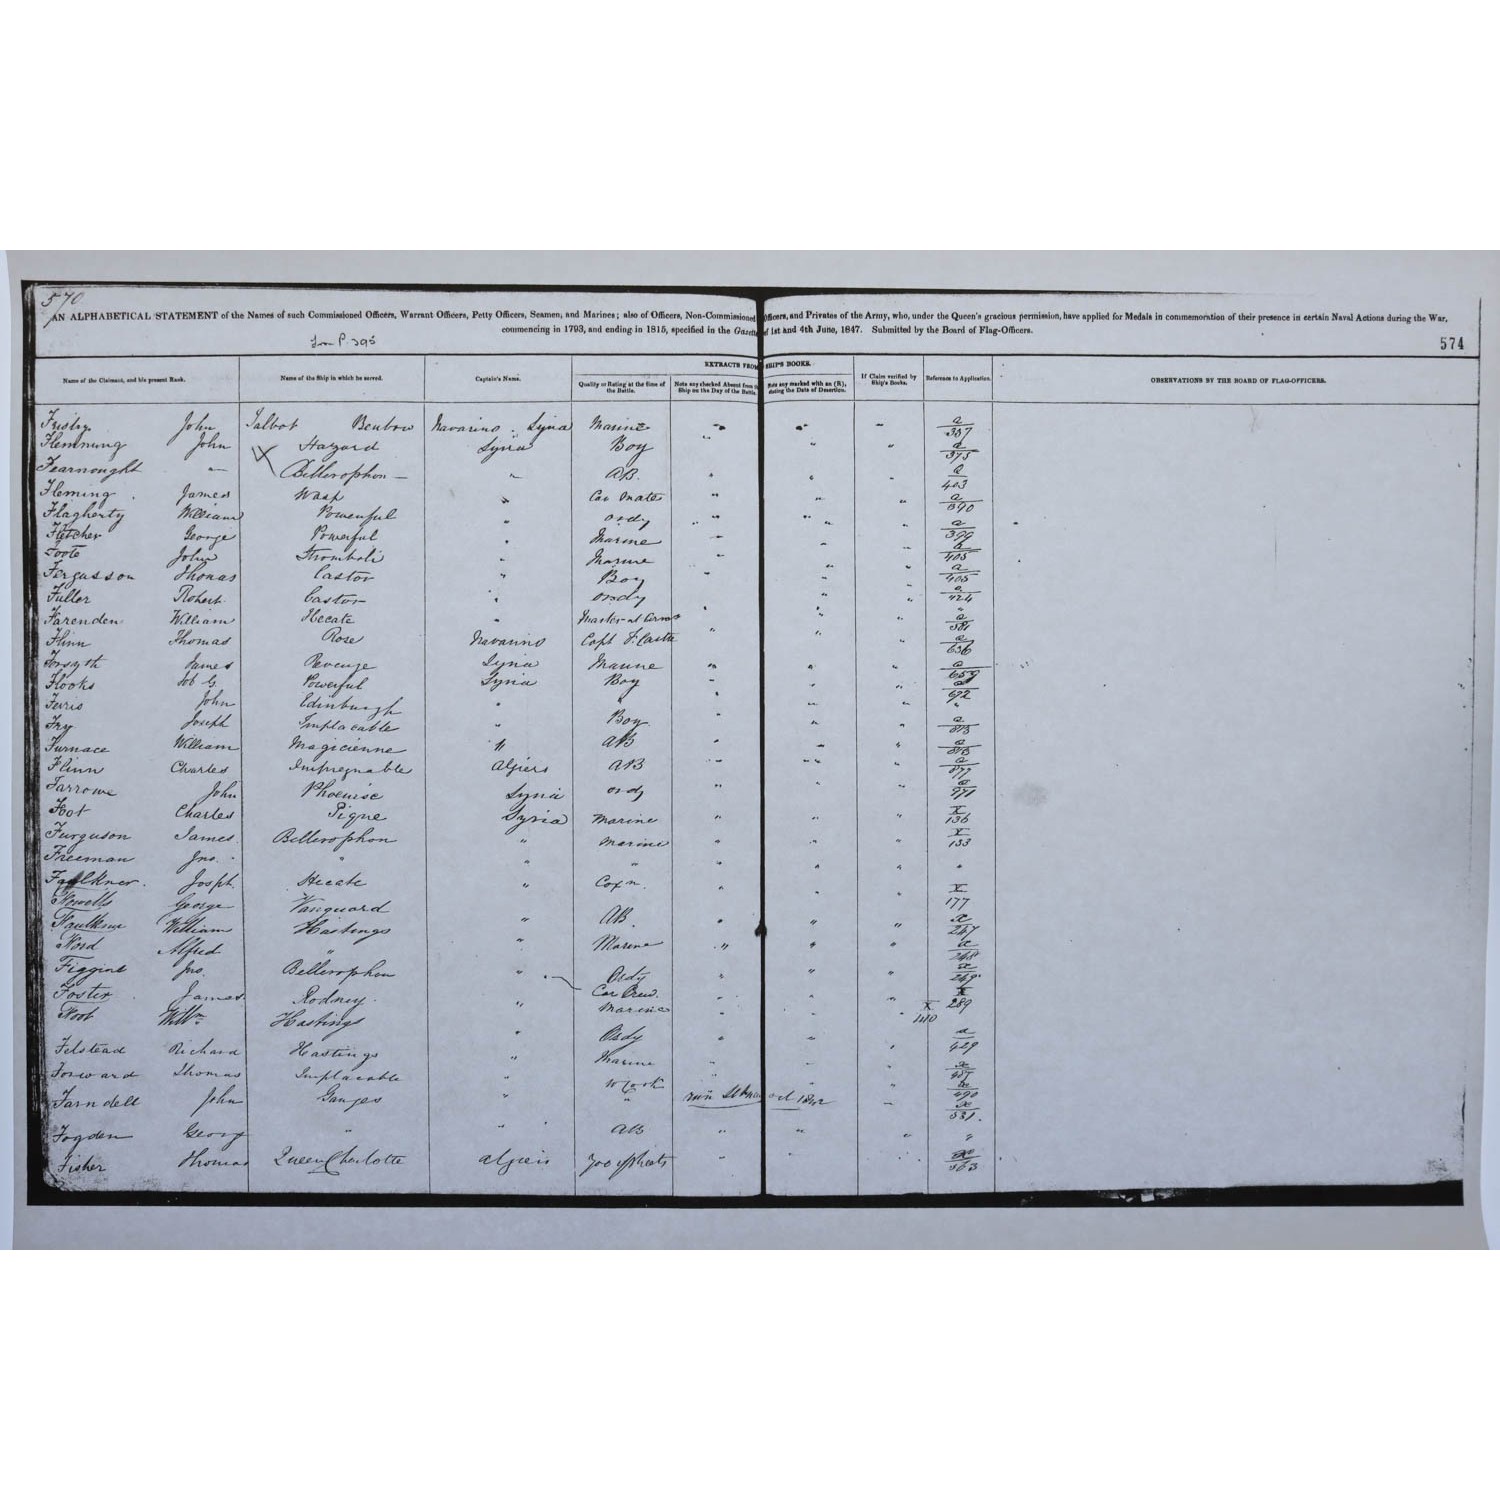 570
AN ALPHABETICAL STATEMENT of the Names of such Commissioned Officers, Warrant Officers, Petty Officers, Seamen, and Marines; also of Officers, Non-Commissioned Officers, and Privates of the Army, who, under the Queen's gracious permission, have applied for Medals in commemoration of their presence in certain Naval Actions during the War,
commencing in 1793, and ending in 1815, specified in the Gazette of 1st and 4th June, 1847. Submitted by the Board of Flag-Officers.
from P. 395
574
EXTRACTS FROM SHIP'S BOOKS.
Name of the Claimant, and his present Rank.
Name of the Ship in which he served.
Captain's Name.
Quality or Rating at the time of the Battle.
Note any checked Absent from the Ship on the Day of the Battle.
Note any marked with an (R), during the Date of Desertion.
If Claim verified by Ship's Books.
Reference to Application.
OBSERVATIONS BY THE BOARD OF FLAG-OFFICERS.
John Talbot Benbow Navarino . Syria Marine a/357
Flemming John Hazard Syria Boy a/375
Fearnought " Bellerophon " AB. a/403
Fleming James Wasp " Car Mate a/390
Flagherty William Powerful " ordy a/399
Fletcher George Powerful " Marine a/405
Foote John Stromboli " Marine a/405
Fergusson Thomas Castor " Boy a/424
Fuller Robert Castor " ordy "
Farenden William Hecate " Master at Arms a/581
Flinn Thomas Rose Navarino Capt F. Castle a/636
Forsyth James Revenge Syria Marine a/659
Flooks Job G. Powerful Syria Boy a/692
Ferris John Edinburgh " " "
Fry Joseph Implacable " Boy a/813
Furnace William Magicienne " AB a/813
Flinn Charles Impregnable Algiers AB a/877
Farrowe John Phoenise Syria ordy a/971
Foot Charles Pique Syria Marine X/136
Furguson James Bellerophon " Marine X/133
Freeman Jno. " " " "
Faulkner Josph Hecate " Coxn. X/177
George Vanguard " AB. x/247
Faulkner William Hastings " Marine x/248
Ford Alfred " x/249
Figgins Jno. Bellerophon " Ordy
Foster James Rodney " Car Crew X/289
Foot Willm Hastings Marine X/440
Felstead Richard Hastings " Ordy x/429
Forward Thomas Implacable " Marine x/487
Farndell John Ganges " Oct 1842 x/531.
Fogden George " " AB "
Fisher Thomas Queen Charlotte Algiers x/563